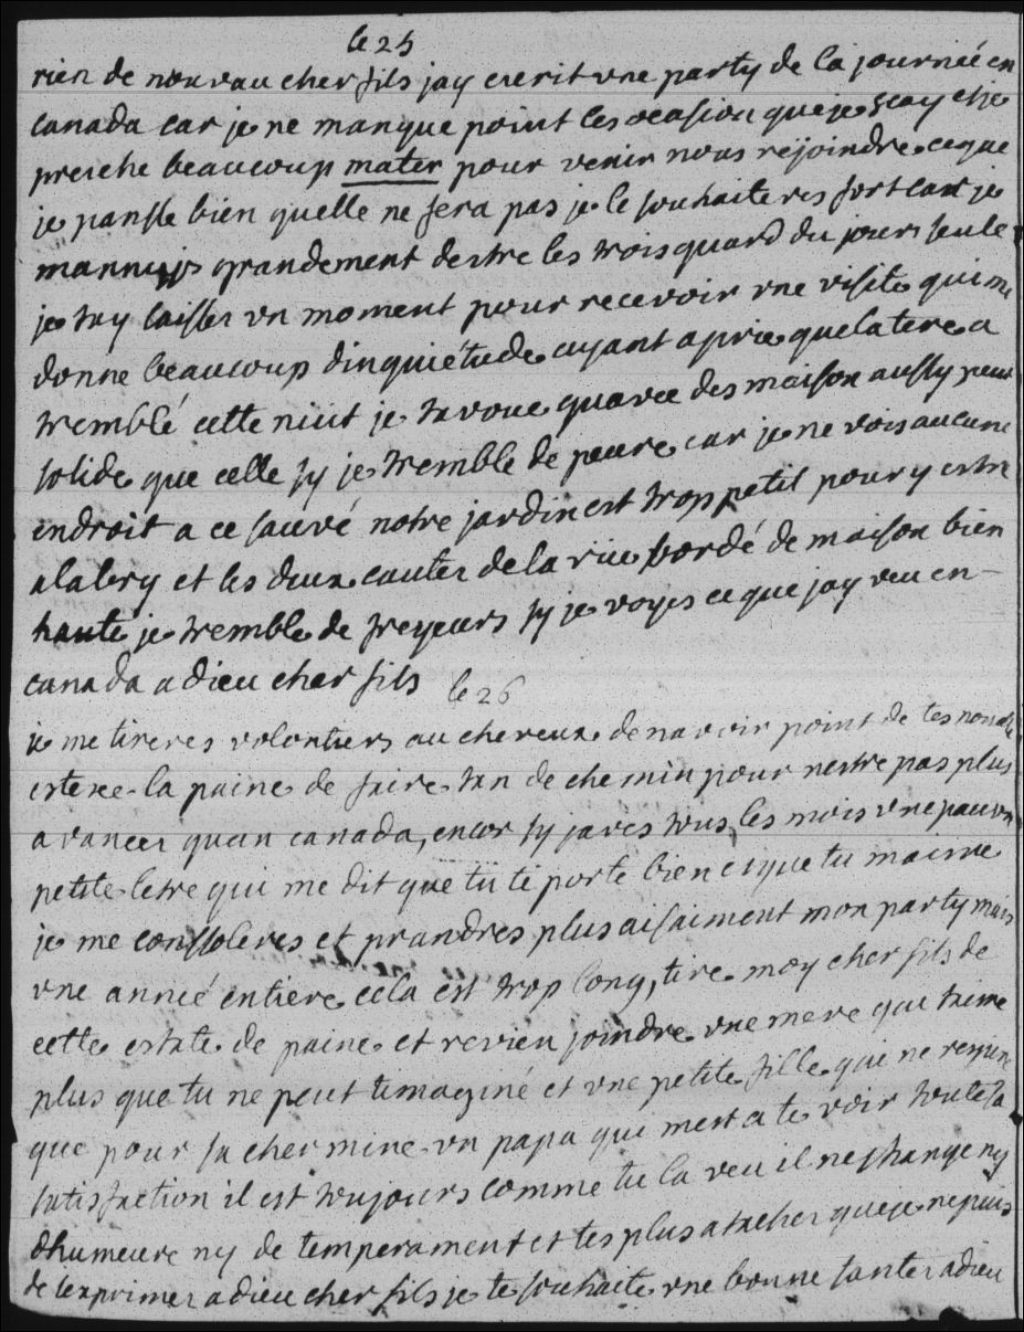 le 25
rien de nouvau cher fils jay ecrit vne party de la journeé en
canada car je ne manque point les ocasion que je scay et je
presche beaucoup mater pour venir nous rejoindre ce que
je pansse bien quelle ne fera pas je le souhaiteres fort car je
mannuys grandement destre les trois quard du jours seule
je tay laisser vn moment pour recevoir vne visite qui me
donne beaucoup dinquiétude ayant aprie que la tere a
tremblé cette nuit je tavoue quavec des maison aussy peut
solide que celle sy je tremble de peure car je ne vois aucune
endroit a ce sauvé notre jardin est trop petit pour y estre
a labry et les deux couter de la rue bordé de maison bien
haute je tremble de freyeurs sy je voyes ce que jay veu en
canada adieu cher fils
le 26
je me tireres volontiers au cheveux de navoir point de tes nouvelle
estesce la paine de faire tan de chemin pour nestre pas plus
avancer quan canada, encor sy javes tous les mois vne pauvre
petite letre qui me dit que tu te porte bien es que tu maime
je me consoleres et prandres plus aisaiment mon party mais
vne anneé entiere cela est trop long, tire moy cher fils de
cette estate de paine et revien joindre vne mere qui taime
plus que tu ne peut timaginé et vne petite fille qui ne respire
que pour sa cher mine vn papa qui mest a te voir toute sa
satisfaction il est toujours comme tu la veu il ne change ny
dhumeure ny de temperament et tes plus atacher que je ne puis
de lexprimer adieu cher fils je te souhaite vne bonne santer adieu